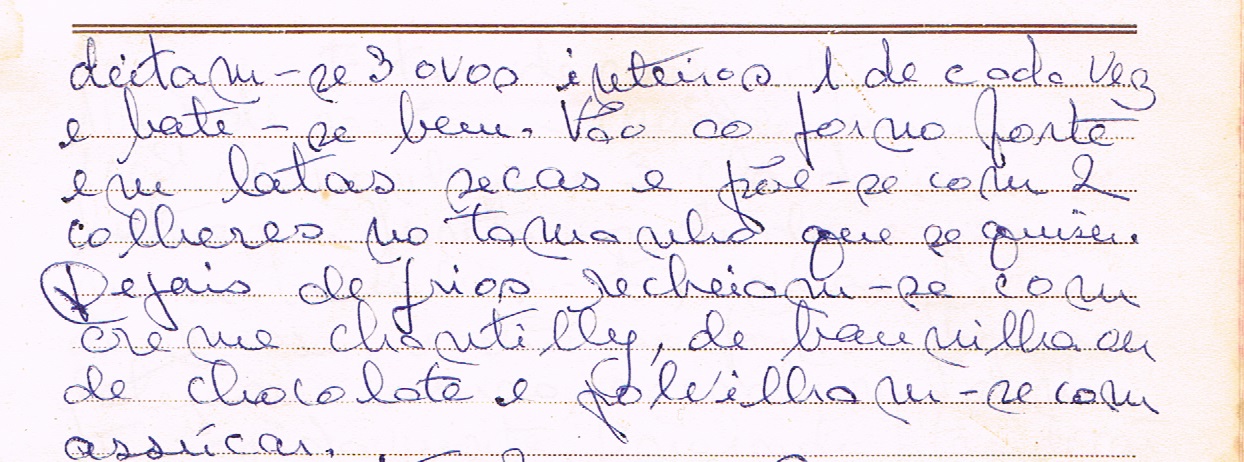 deitam-se 3 ovos inteiros 1 de cada vez
e bate-se bem. Vão ao forno forte
em latas secas e põe-se com 2
colheres no tamanho que se quiser.
Depois de frios recheiam-se com
creme chantilly, de baunilha ou
de chocolate e polvilham-se com
assúcar.